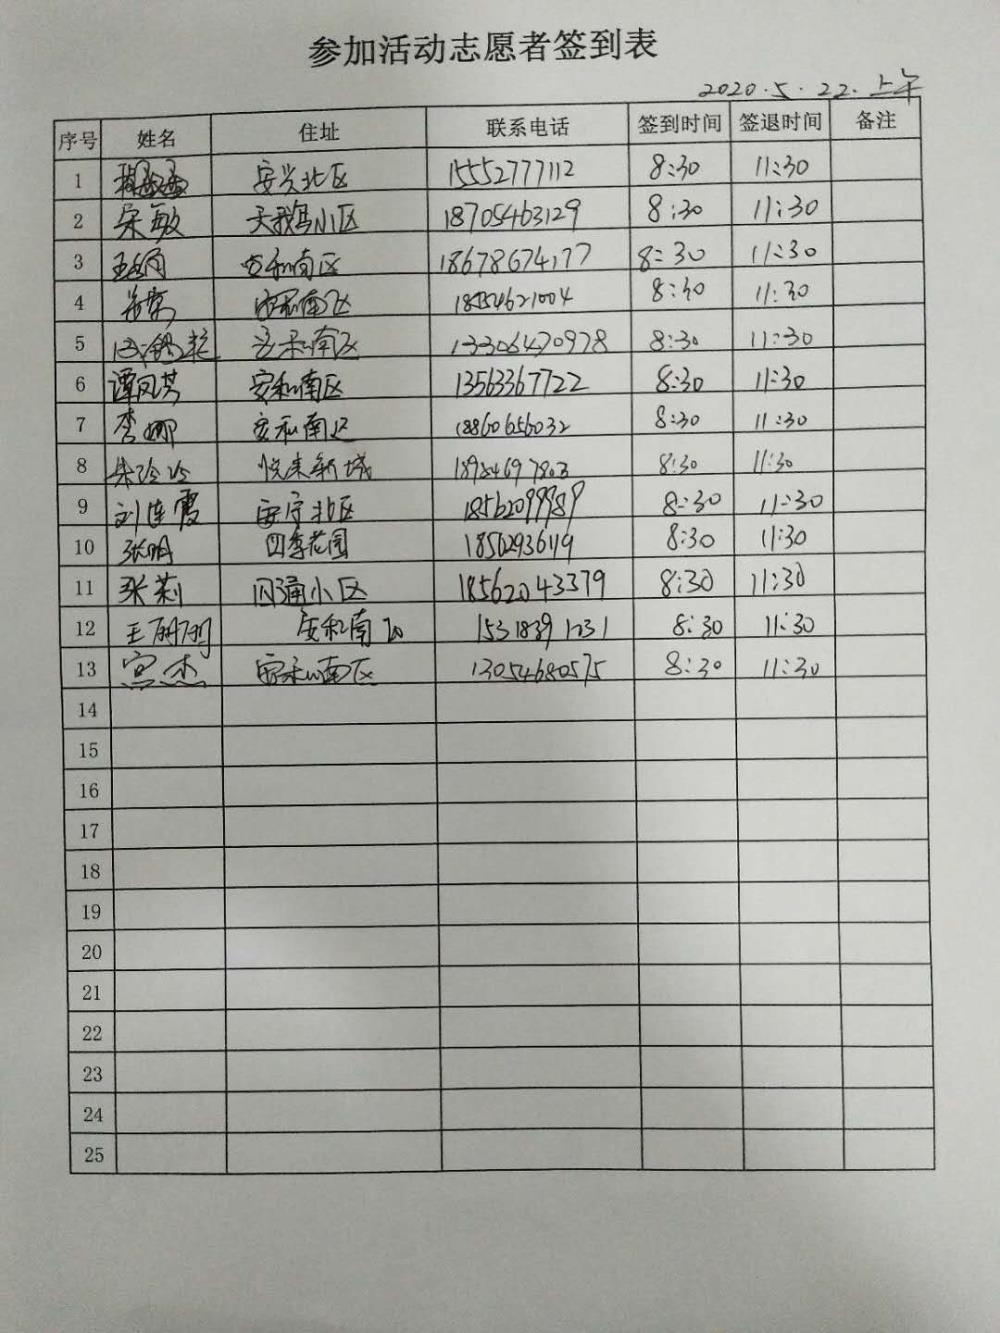 参加活动志愿者签到表
2020.5.22.上午
序号 姓名 住址 联系电话 签到时间 签退时间 备注
1 安兴北区 15552777112 8:30 11:30
2 宋敏 天鹅小区 18705463129 8:30 11:30
3 安和南区 18678674177 8:30 11:30
4 安和南区 18554621004 8:30 11:30
5 安和南区 13306470978 8:30 11:30
6 谭凤芳 安和南区 13563367722 8:30 11:30
7 李娜 安和南区 18860656032 8:30 11:30
8 朱玲玲 悦来新城 8:30 11:30
9 刘连霞 安宁北区 18562099989 8:30 11:30
10 张明 四季花园 8:30 11:30
11 张莉 小区 18562043379 8:30 11:30
12 王丽丽 安和南区 15318391231 8:30 11:30
13 宫杰 安和南区 13054680575 8:30 11:30
14
15
16
17
18
19
20
21
22
23
24
25